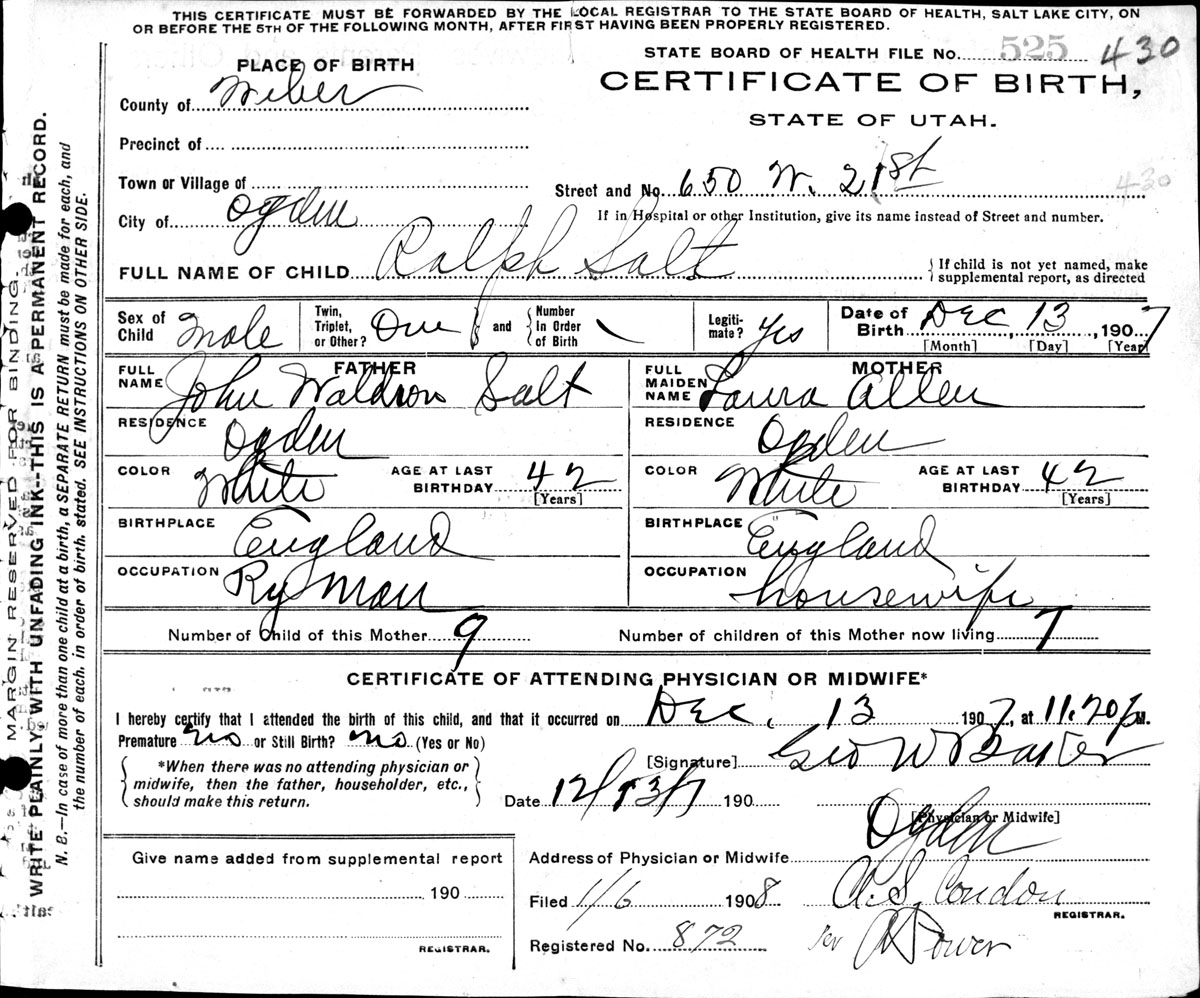 THIS CERTIFICATE MUST BE FORWARDED BY THE LOCAL REGISTRAR TO THE STATE BOARD OF HEALTH, SALT LAKE CITY, ON
OR BEFORE THE 5TH OF THE FOLLOWING MONTH, AFTER FIRST HAVING BEEN PROPERLY REGISTERED.
STATE BOARD OF HEALTH FILE No. 525 430
PLACE OF BIRTH
CERTIFICATE OF BIRTH,
County of Weber
STATE OF UTAH.
Precinct of
Town or Village of
Street and No. 650 W. 21st
430
City of Ogden
If in Hospital or other Institution, give its name instead of Street and number.
FULL NAME OF CHILD Ralph Salt
{If child is not yet named, make supplemental report, as directed
Sex of Child Male
Twin, Triplet, or Other? One } and { Number In Order of Birth
Legitimate? Yes
Date of Birth Dec, 13, 1907
[Month] [Day] [Year]
FATHER
FULL NAME John Waldron Salt
MOTHER
FULL MAIDEN NAME Laura Allen
RESIDENCE Ogden
RESIDENCE Ogden
COLOR White AGE AT LAST BIRTHDAY 42 [Years]
COLOR White AGE AT LAST BIRTHDAY 42 [Years]
BIRTHPLACE England
BIRTHPLACE England
OCCUPATION Ry Man
OCCUPATION housewife
Number of Child of this Mother 9
Number of children of this Mother now living 7
CERTIFICATE OF ATTENDING PHYSICIAN OR MIDWIFE*
I hereby certify that I attended the birth of this child, and that it occurred on Dec, 13 1907, at 11.20 P M.
Premature no or Still Birth? no (Yes or No)
[Signature] Geo W Baker
{ *When there was no attending physician or midwife, then the father, householder, etc., should make this return. }
Date 12/13/7 190
[Physician or Midwife]
Give name added from supplemental report
Address of Physician or Midwife Ogden
190
Filed 1/6 1908 A.S. Condon
REGISTRAR.
REGISTRAR.
Registered No. 872 Per A Power
MARGIN RESERVED FOR BINDING.
WRITE PLAINLY WITH UNFADING INK--THIS IS A PERMANENT RECORD.
N. B.—In case of more than one child at a birth, a SEPARATE RETURN must be made for each, and
the number of each, in order of birth, stated. SEE INSTRUCTIONS ON OTHER SIDE.